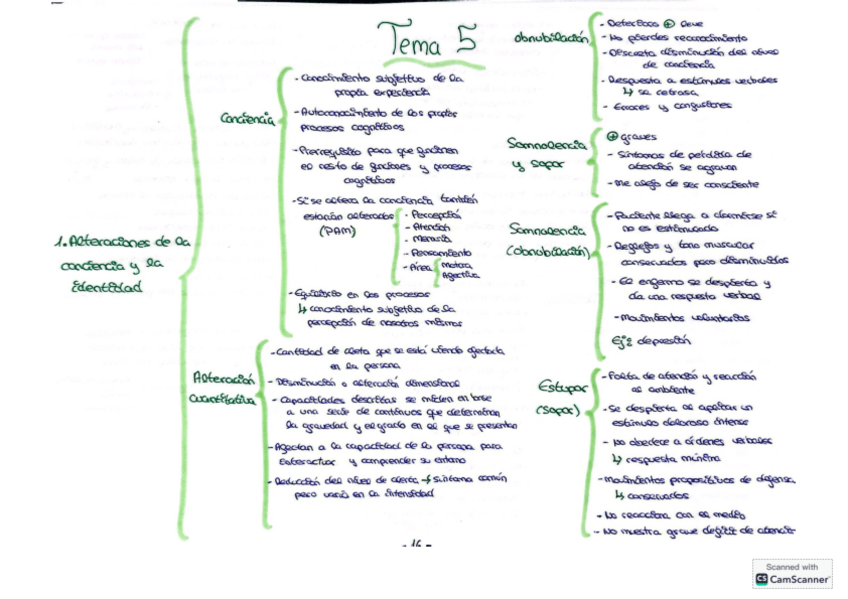 Tema 5
1. Alteraciones de la
conciencia y la
identidad
Conciencia
- Conocimiento subjetivo de la
propia experiencia
- Autoconocimiento de los propios
procesos cognitivos
- Prerrequisito para que funcionen
el resto de funciones y procesos
cognitivos
- Si se altera la conciencia también
estarán alterados
(PAM)
- Percepción
- Atención
- Memoria
- Pensamiento
- Área
Motora
Afectiva
- Equilibrio en los procesos
↳ conocimiento subjetivo de la
percepción de nosotros mismos
Alteración
cuantitativa
- Cantidad de alerta que se está viendo afectada
en la persona
- Disminución o alteración dimensional
- Capacidades descritas se miden en base
a una serie de continuos que determinan
la gravedad y el grado en el que se presentan
- Afectan a la capacidad de la persona para
interactuar y comprender su entorno
- Reducción del nivel de alerta → síntoma común
pero varía en la intensidad
obnubilación
- Deterioro ⊕ leve
- No pierdes reconocimiento
- Discreta disminución del nivel
de conciencia
- Respuesta a estímulos verbales
↳ se retrasa
- Errores y confusiones
Somnolencia
y sopor
⊕ graves
- Síntomas de pérdida de
atención se agravan
- Me alejo de ser consciente
Somnolencia
(obnubilación)
- Paciente llega a dormirse si
no es estimulado
- Reflejos y tono muscular
conservados pero disminuidos
- El enfermo se despierta y
da una respuesta verbal
- Movimientos voluntarios
Ej: depresión
Estupor
(sopor)
- Falta de atención y reacción
al ambiente
- Se despierta al aplicar un
estímulo doloroso intenso
- No obedece a órdenes verbales
↳ respuesta mínima
- Movimientos propositivos de defensa
↳ conservados
- No reacciona con el medio
- No muestra grave déficit de atención
- 16 -
Scanned with
CS CamScanner